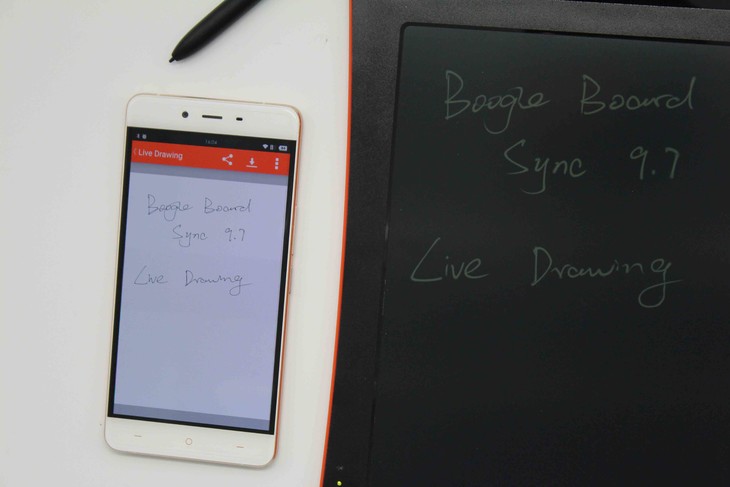 Live Drawing
Boogie Board
Sync 9.7
Live Drawing
Boogie Board
Sync 9.7
Live Drawing